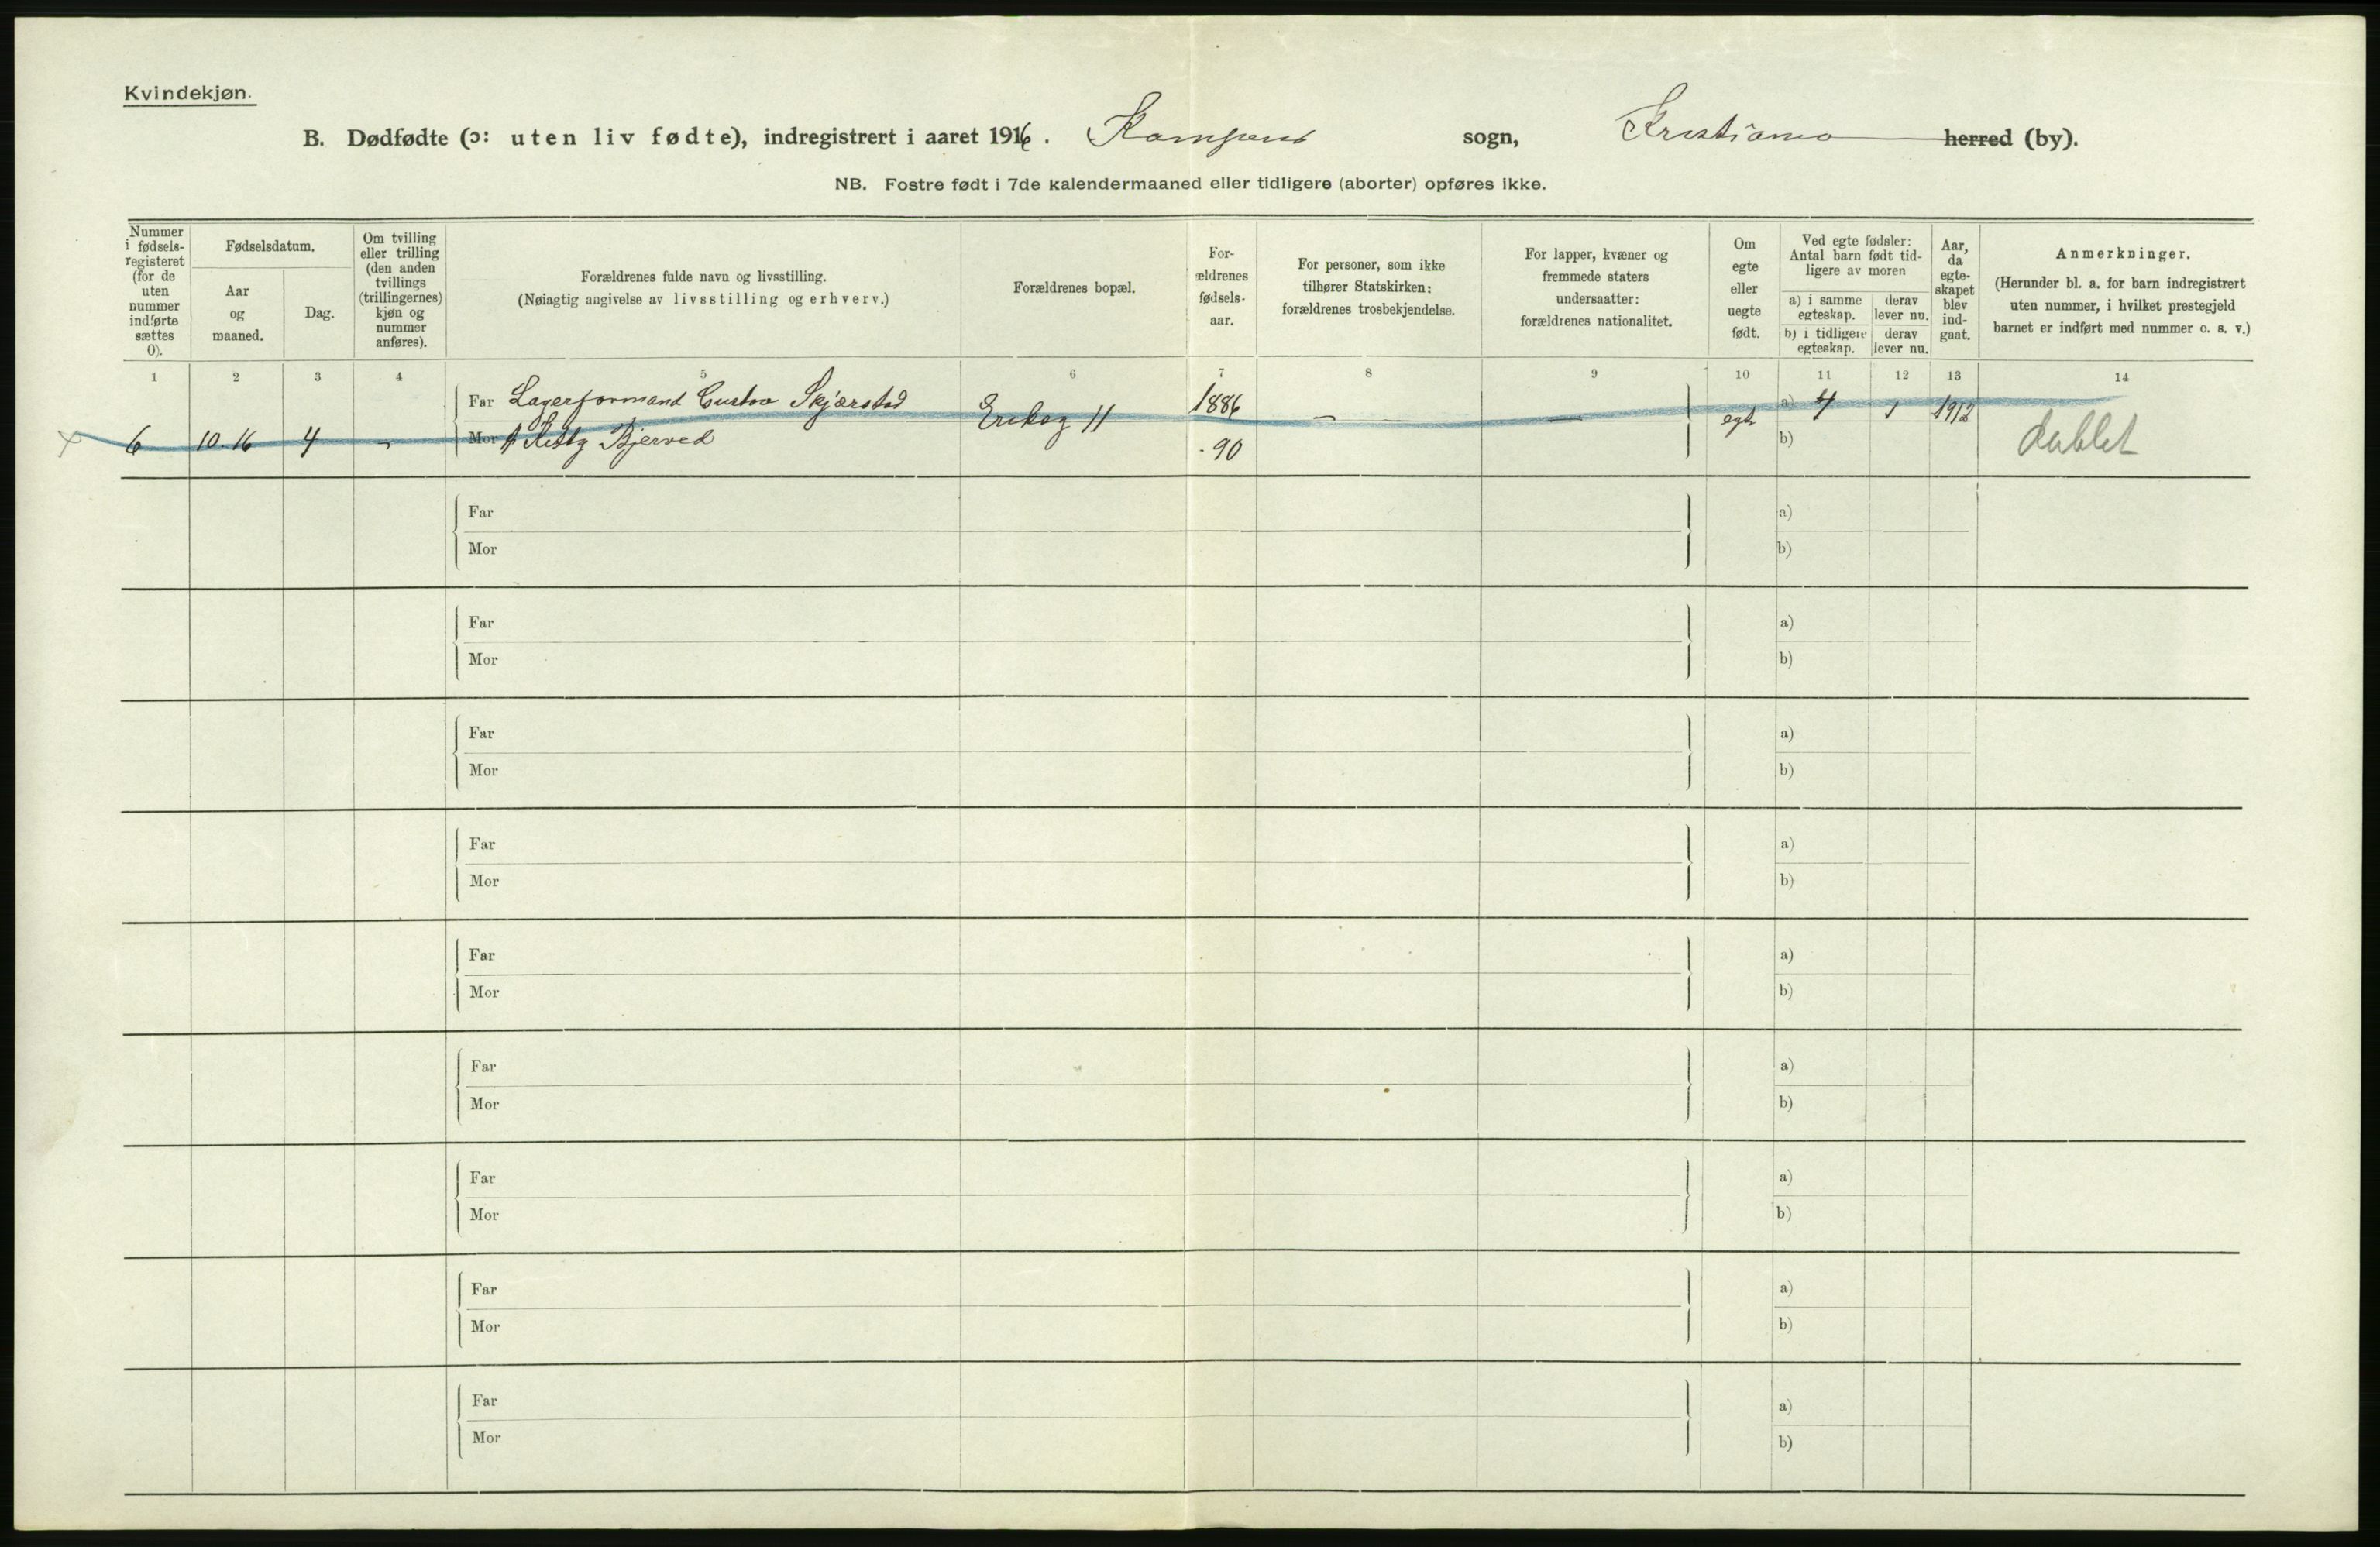 Kvindekjøn.
B. Dødfødte (ɔ: uten liv fødte), indregistrert i aaret 1916. Kampens sogn, Kristiania herred (by).
NB. Fostre født i 7de kalendermaaned eller tidligere (aborter) opføres ikke.
Nummer i fødsels-registeret (for de uten nummer indførte sættes 0).
Fødselsdatum.
Aar og maaned.
Dag.
Om tvilling eller trilling (den anden tvillings (trillingernes) kjøn og nummer anføres).
Forældrenes fulde navn og livsstilling.
(Nøiagtig angivelse av livsstilling og erhverv.)
Forældrenes bopæl.
For-ældrenes fødsels-aar.
For personer, som ikke tilhører Statskirken: forældrenes trosbekjendelse.
For lapper, kvæner og fremmede staters undersaatter: forældrenes nationalitet.
Om egte eller uegte født.
Ved egte fødsler: Antal barn født tid-ligere av moren
a) i samme egteskap.
derav lever nu.
b) i tidligere egteskap.
derav lever nu.
Aar, da egte-skapet blev ind-gaat.
Anmerkninger.
(Herunder bl. a. for barn indregistrert uten nummer, i hvilket prestegjeld barnet er indført med nummer o. s. v.)
1 2 3 4 5 6 7 8 9 10 11 12 13 14
Far Lagerformand Gustav Skjærstad 1886 a) 4 1 1912
6 10.16 4 - Mor Bjerved 11 - 90 - - egte b) dublet
Far a)
Mor b)
Far a)
Mor b)
Far a)
Mor b)
Far a)
Mor b)
Far a)
Mor b)
Far a)
Mor b)
Far a)
Mor b)
Far a)
Mor b)
Far a)
Mor b)